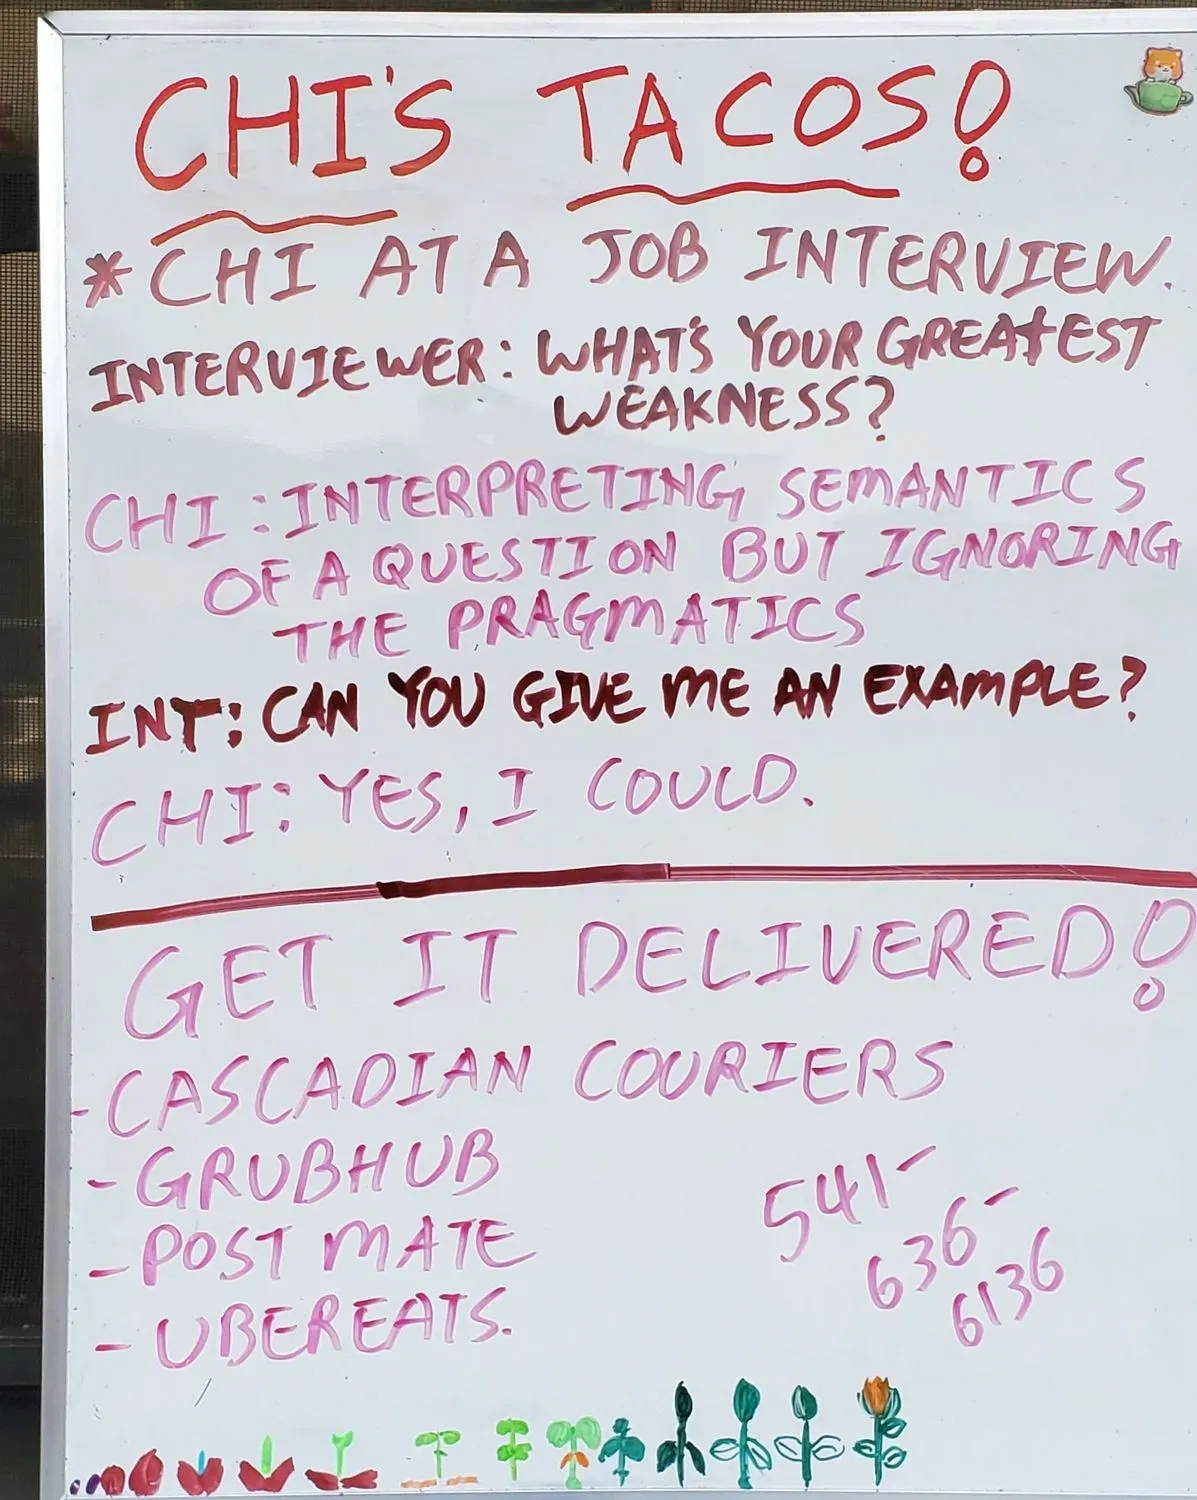 CHI'S TACOS!
*CHI AT A JOB INTERVIEW.
INTERVIEWER: WHAT'S YOUR GREATEST
WEAKNESS?
CHI: INTERPRETING SEMANTICS
OF A QUESTION BUT IGNORING
THE PRAGMATICS
INT: CAN YOU GIVE ME AN EXAMPLE?
CHI: YES, I COULD.
GET IT DELIVERED!
- CASCADIAN COURIERS
- GRUBHUB
- POST MATE
- UBEREATS.
541-
636-
6136